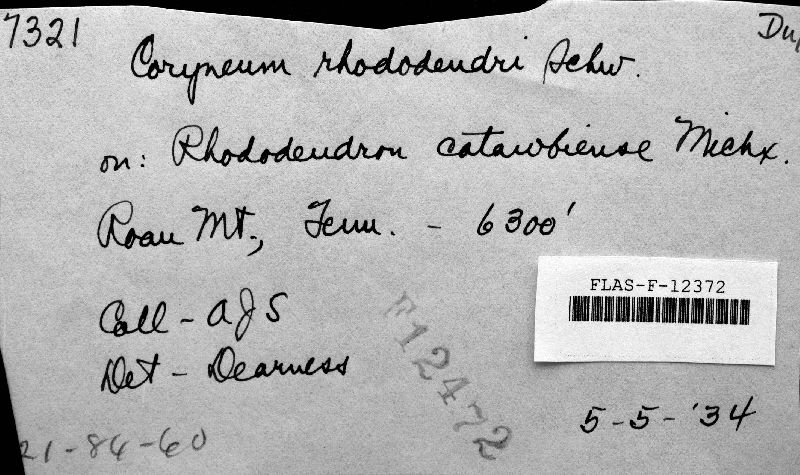 7321
Dup
Coryneum rhododendri Schw.
on: Rhododendron catawbiense Michx.
Roan Mt., Tenn. - 6300'
FLAS-F-12372
Coll - AJS
Det - Dearness
F12472
5-5-'34
21-84-60